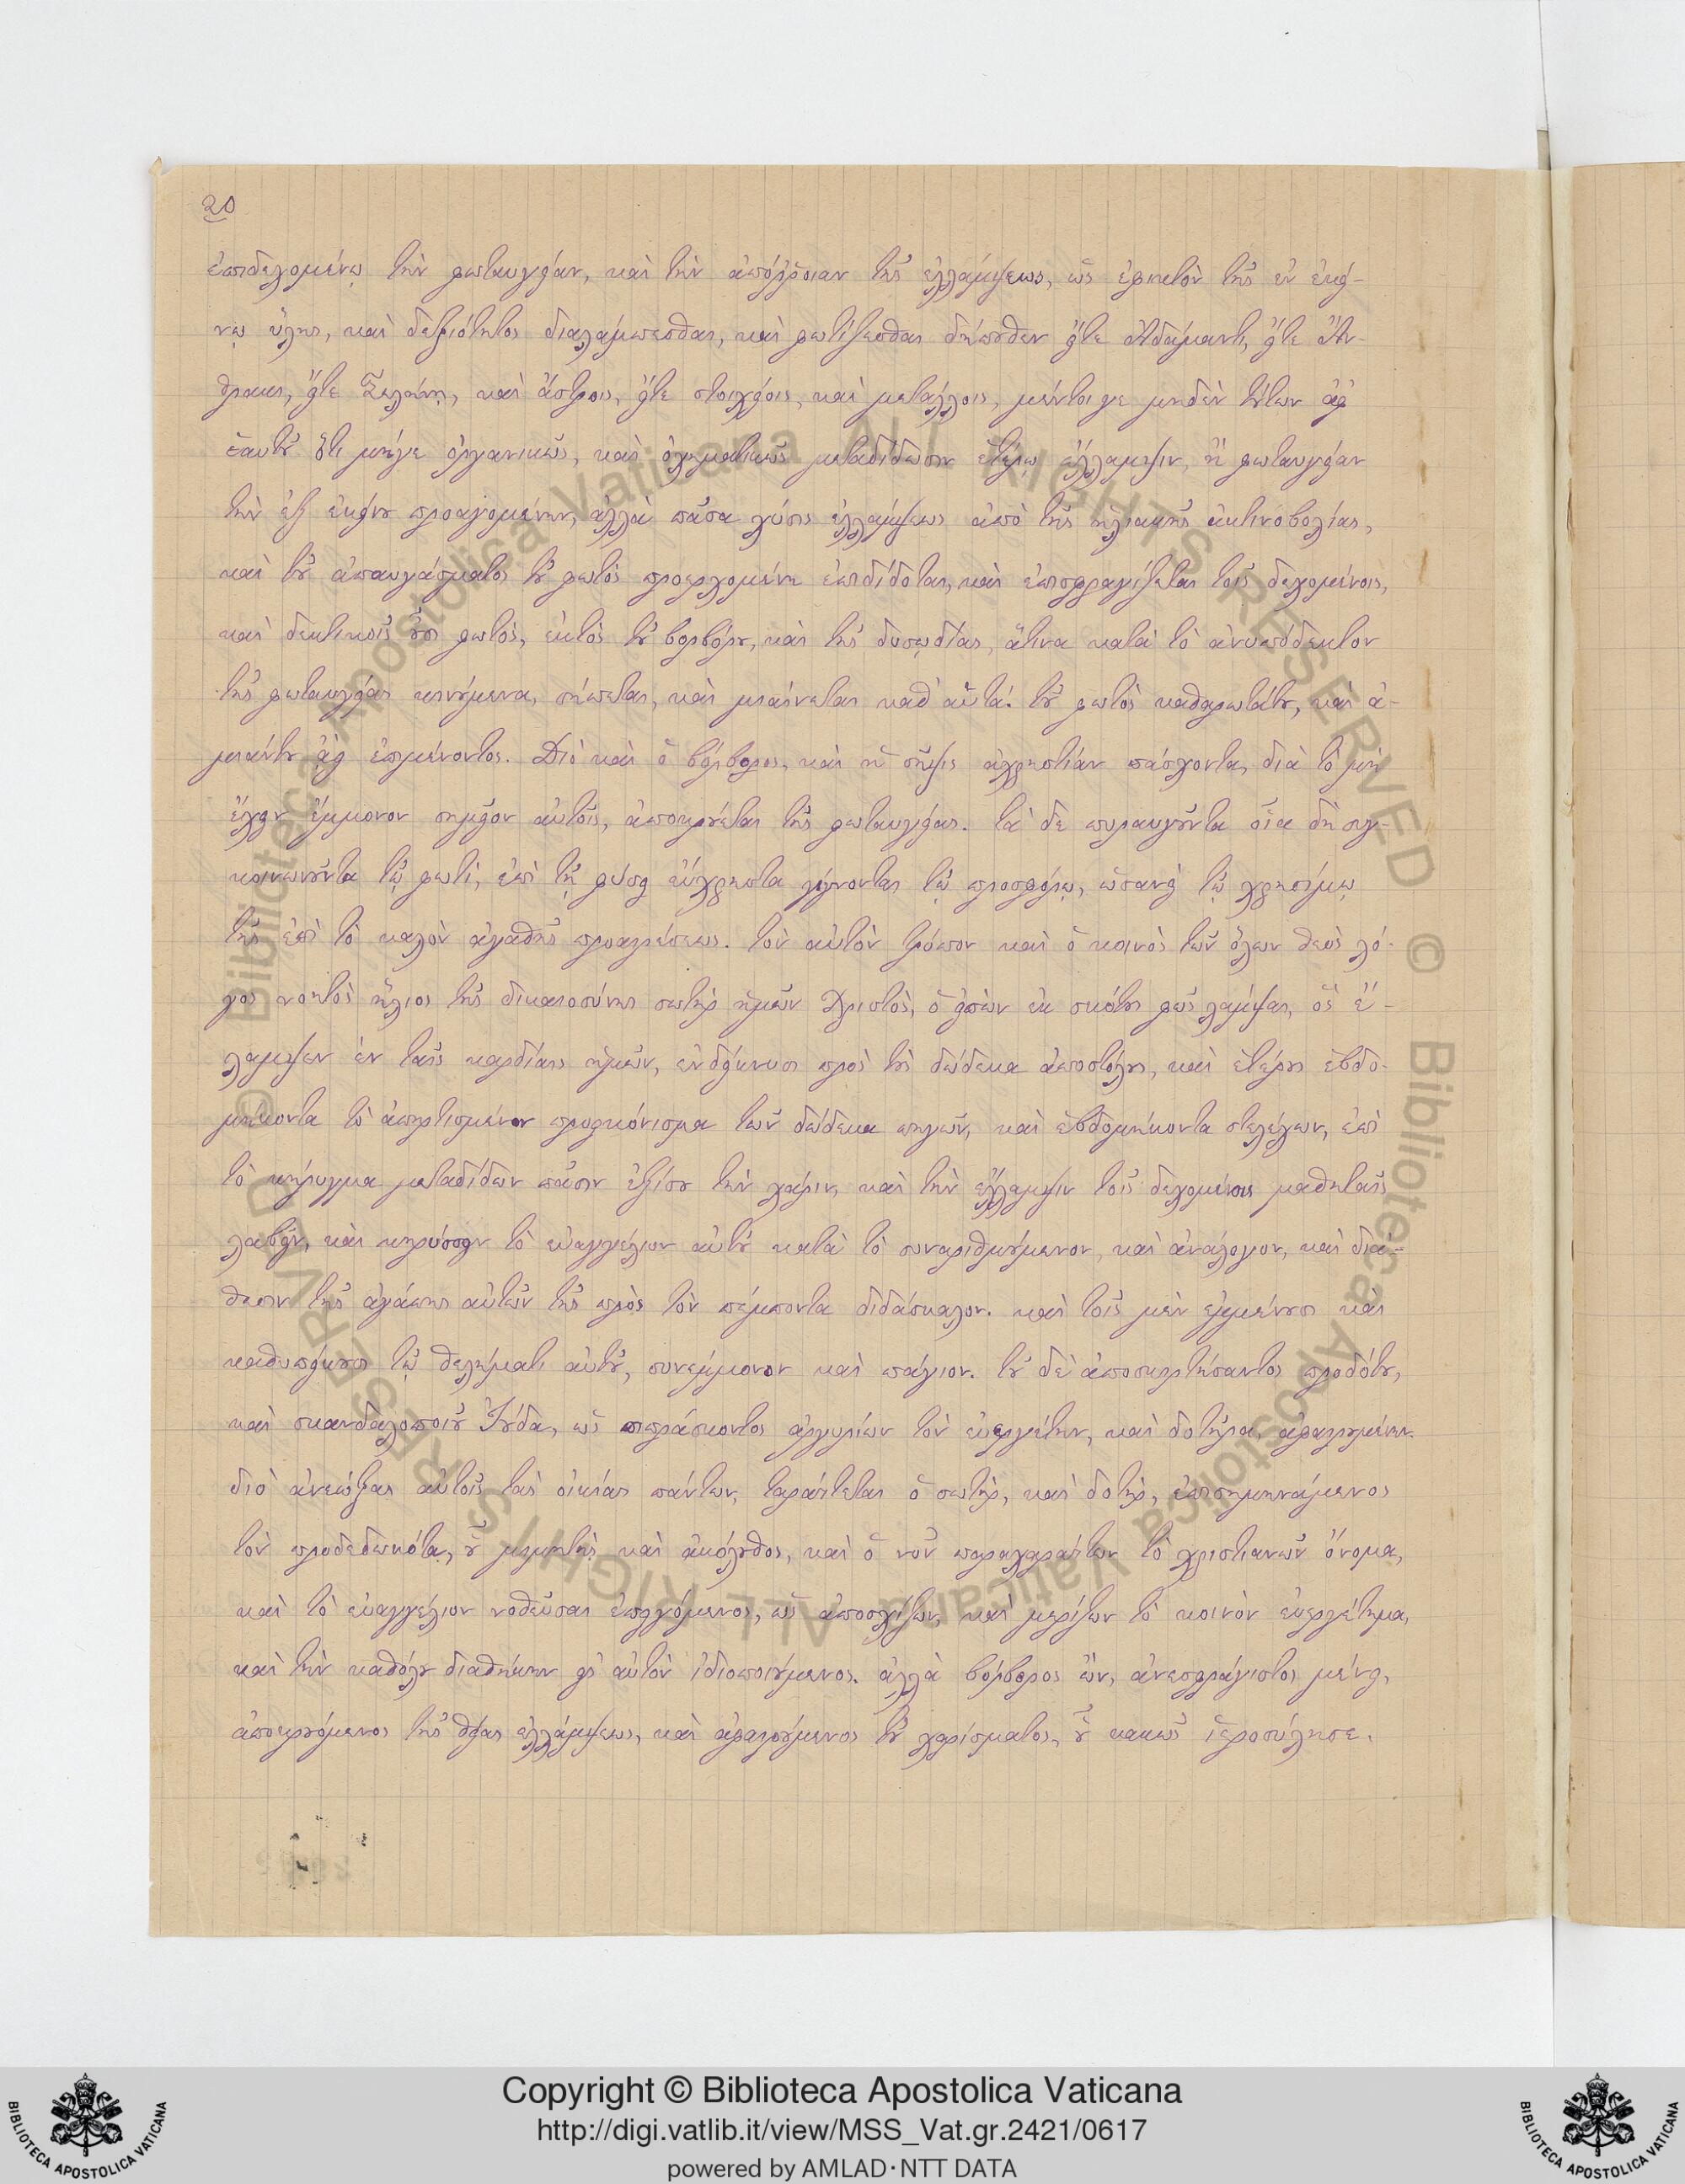 20
ἐπιδεχομένῳ τὴν φωταυγείαν, καὶ τὴν ἀπόρῥοιαν τῆς ἐλλάμψεως, ὡς ἐφικτὸν τῆς ἐν ἐκεί-
νῳ ὕλης, καὶ δεξιότητος διαλάμπεσθαι, καὶ φωτίζεσθαι δήπουθεν εἴτε Ἀδάμαντι, εἴτε Ἄν-
θρακι, εἴτε Σελήνῃ, καὶ ἄστροις, εἴτε στοιχείοις, καὶ μετάλλοις, μέντοιγε μηδὲν τούτων ἀφ᾽
ἑαυτοῦ ὅτι μήγε ὀργανικῶς, καὶ ὀχηματικῶς μεταδίδωσιν ἑτέρῳ ἔλλαμψιν, ἢ φωταυγείαν
τὴν ἐξ ἐκείνου προαγομένην, ἀλλὰ πᾶσα χύσις ἐλλάμψεως ἀπὸ τῆς ἡλιακῆς ἀκτινοβολίας,
καὶ τοῦ ἀπαυγάσματος τοῦ φωτὸς προερχομένη ἐπιδίδοται, καὶ ἐπισφραγίζεται τοῖς δεχομένοις,
καὶ δεκτικοῖς οὖσι φωτὸς, ἐκτὸς τοῦ βορβόρου, καὶ τῆς δυσῳδίας, ἅτινα κατὰ τὸ ἀνυπόδεκτον
τῆς φωταυγείας κινούμενα, σήπεται, καὶ μιαίνεται καθ᾽ αὑτά. τοῦ φωτὸς καθαρωτάτου, καὶ ἀ-
μιάντου ἀεὶ ἐπιμένοντος. Διὸ καὶ ὁ βόρβορος, καὶ ἡ σῆψις ἀχρηστίαν πάσχοντα, διὰ τὸ μὴ
ἔχειν ἔμμονον σημεῖον αὐτοῖς, ἀποκρούεται τῆς φωταυγείας. τὰ δὲ πυραυγοῦντα οἷα δὴ συγ-
κοινωνοῦντα τῷ φωτὶ, ἐπὶ τῇ φύσει εὔχρηστα γίγνονται τῷ προσφόρῳ, ὡσανεὶ τῷ χρησίμῳ
τῆς ἐπὶ τὸ καλὸν ἀγαθῆς προαιρέσεως. τὸν αὐτὸν τρόπον καὶ ὁ κοινὸς τῶν ὅλων θεὸς λό-
γος νοητὸς ἥλιος τῆς δικαιοσύνης σωτὴρ ἡμῶν Χριστὸς, ὁ εἰπὼν ἐκ σκότους φῶς λάμψαι, ὃς ἔ-
λαμψεν ἐν ταῖς καρδίαις ἡμῶν, ἐνδείκνυσι πρὸς τοὺς δώδεκα ἀποστόλους, καὶ ἑτέρους ἑβδο-
μήκοντα τὸ ἀπηρτισμένον προεικόνισμα τῶν δώδεκα πηγῶν, καὶ ἑβδομήκοντα στελέχων, ἐπὶ
τὸ κήρυγμα μεταδίδων πᾶσιν ἐξίσου τὴν χάριν, καὶ τὴν ἔλλαμψιν τοῖς δεχομένοις μαθηταῖς
λαβεῖν, καὶ κηρύσσειν τὸ εὐαγγέλιον αὐτοῦ κατὰ τὸ συναριθμούμενον, καὶ ἀνάλογον, καὶ διά-
θεσιν τῆς ἀγάπης αὐτῶν τῆς πρὸς τὸν πέμποντα διδάσκαλον. καὶ τοῖς μὲν ἐμμένουσι καὶ
καθυπείκουσι τῷ θελήματι αὐτοῦ, συνέμμονον καὶ πάγιον. τοῦ δὲ ἀποσκιρτήσαντος προδότου,
καὶ σκανδαλοποιοῦ Ἰούδα, ὡς πιπράσκοντος ἀργυρίων τὸν εὐεργέτην, καὶ δοτῆρα, ἀφαιρουμένην.
διὸ ἀνεώξας αὐτοῖς τὰς οἰκίας πάντων, ταράττεται ὁ σωτὴρ, καὶ δοτὴρ, ἐπισημηνάμενος
τὸν προδεδωκότα, οὗ μιμητὴς καὶ ἀκόλουθος, καὶ ὁ νῦν παραχαράττων τὸ χριστιανῶν ὄνομα,
καὶ τὸ εὐαγγέλιον νοθεῦσαι ἐπειγόμενος, ὡς ἀποσχίζων, καὶ μερίζων τὸ κοινὸν εὐεργέτημα,
καὶ τὴν καθόλου διαθήκην εἰς αὐτὸν ἰδιοποιούμενος. ἀλλὰ βόρβορος ὢν, ἀνεσφράγιστος μένει,
ἀποκρουόμενος τῆς θείας ἐλλάμψεως, καὶ ἀφαιρούμενος τοῦ χαρίσματος, οὗ κακῶς ἱεροσύλησε.
© Biblioteca Apostolica Vaticana ALL RIGHTS RESERVED © Biblioteca Apostolica Vaticana ALL RIGHTS RESERVED
Copyright © Biblioteca Apostolica Vaticana
http://digi.vatlib.it/view/MSS_Vat.gr.2421/0617
powered by AMLAD·NTT DATA
BIBLIOTECA APOSTOLICA VATICANA
BIBLIOTECA APOSTOLICA VATICANA